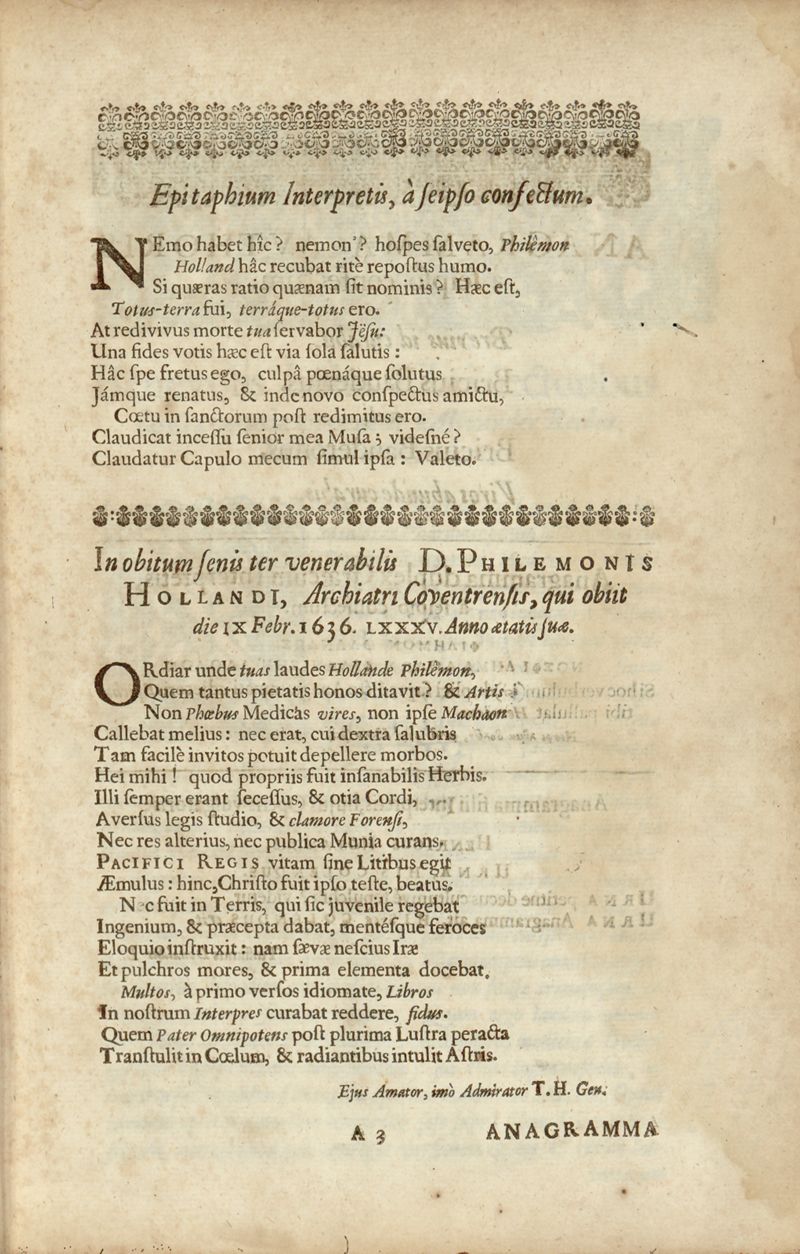 Epitaphium Interpretis, à ſeipſo confectum.
NEmo habet hîc? nemon'? hoſpes ſalveto, Philêmon
Holland hâc recubat ritè repoſtus humo.
Si quæras ratio quænam ſit nominis? Hæc eſt,
Totus-terra fui, terráque-totus ero.
At redivivus morte tua ſervabor Jêſu:
Una fides votis hæc eſt via ſola ſalutis:
Hâc ſpe fretus ego, culpâ pœnáque ſolutus
Jámque renatus, & inde novo conſpectus amictu,
Cœtu in ſanctorum poſt redimitus ero.
Claudicat inceſſu ſenior mea Muſa; videſné?
Claudatur Capulo mecum ſimul ipſa: Valeto.
In obitum ſenis ter venerabilis D. PHILEMONIS
HOLLANDI, Archiatri Coventrenſis, qui obiit
die IX Febr. 1636. LXXXV. Anno ætatis ſuæ.
ORdiar unde tuas laudes Hollande Philêmon,
Quem tantus pietatis honos ditavit? & Artis
Non Phœbus Medicas vires, non ipſe Machaon
Callebat melius: nec erat, cui dextra ſalubris
Tam facilè invitos potuit depellere morbos.
Hei mihi! quod propriis fuit inſanabilis Herbis.
Illi ſemper erant ſeceſſus, & otia Cordi,
Averſus legis ſtudio, & clamore Forenſi,
Nec res alterius, nec publica Munia curans.
PACIFICI REGIS vitam ſine Litibus egit
Æmulus: hinc, Chriſto fuit ipſo teſte, beatus.
N c fuit in Terris, qui ſic juvenile regebat
Ingenium, & præcepta dabat, mentéſque feroces
Eloquio inſtruxit: nam ſævæ neſcius Iræ
Et pulchros mores, & prima elementa docebat.
Multos, à primo verſos idiomate, Libros
In noſtrum Interpres curabat reddere, fidus.
Quem Pater Omnipotens poſt plurima Luſtra peracta
Tranſtulit in Cœlum, & radiantibus intulit Aſtris.
Ejus Amator, imò Admirator T. H. Gen.
A 3 ANAGRAMMA